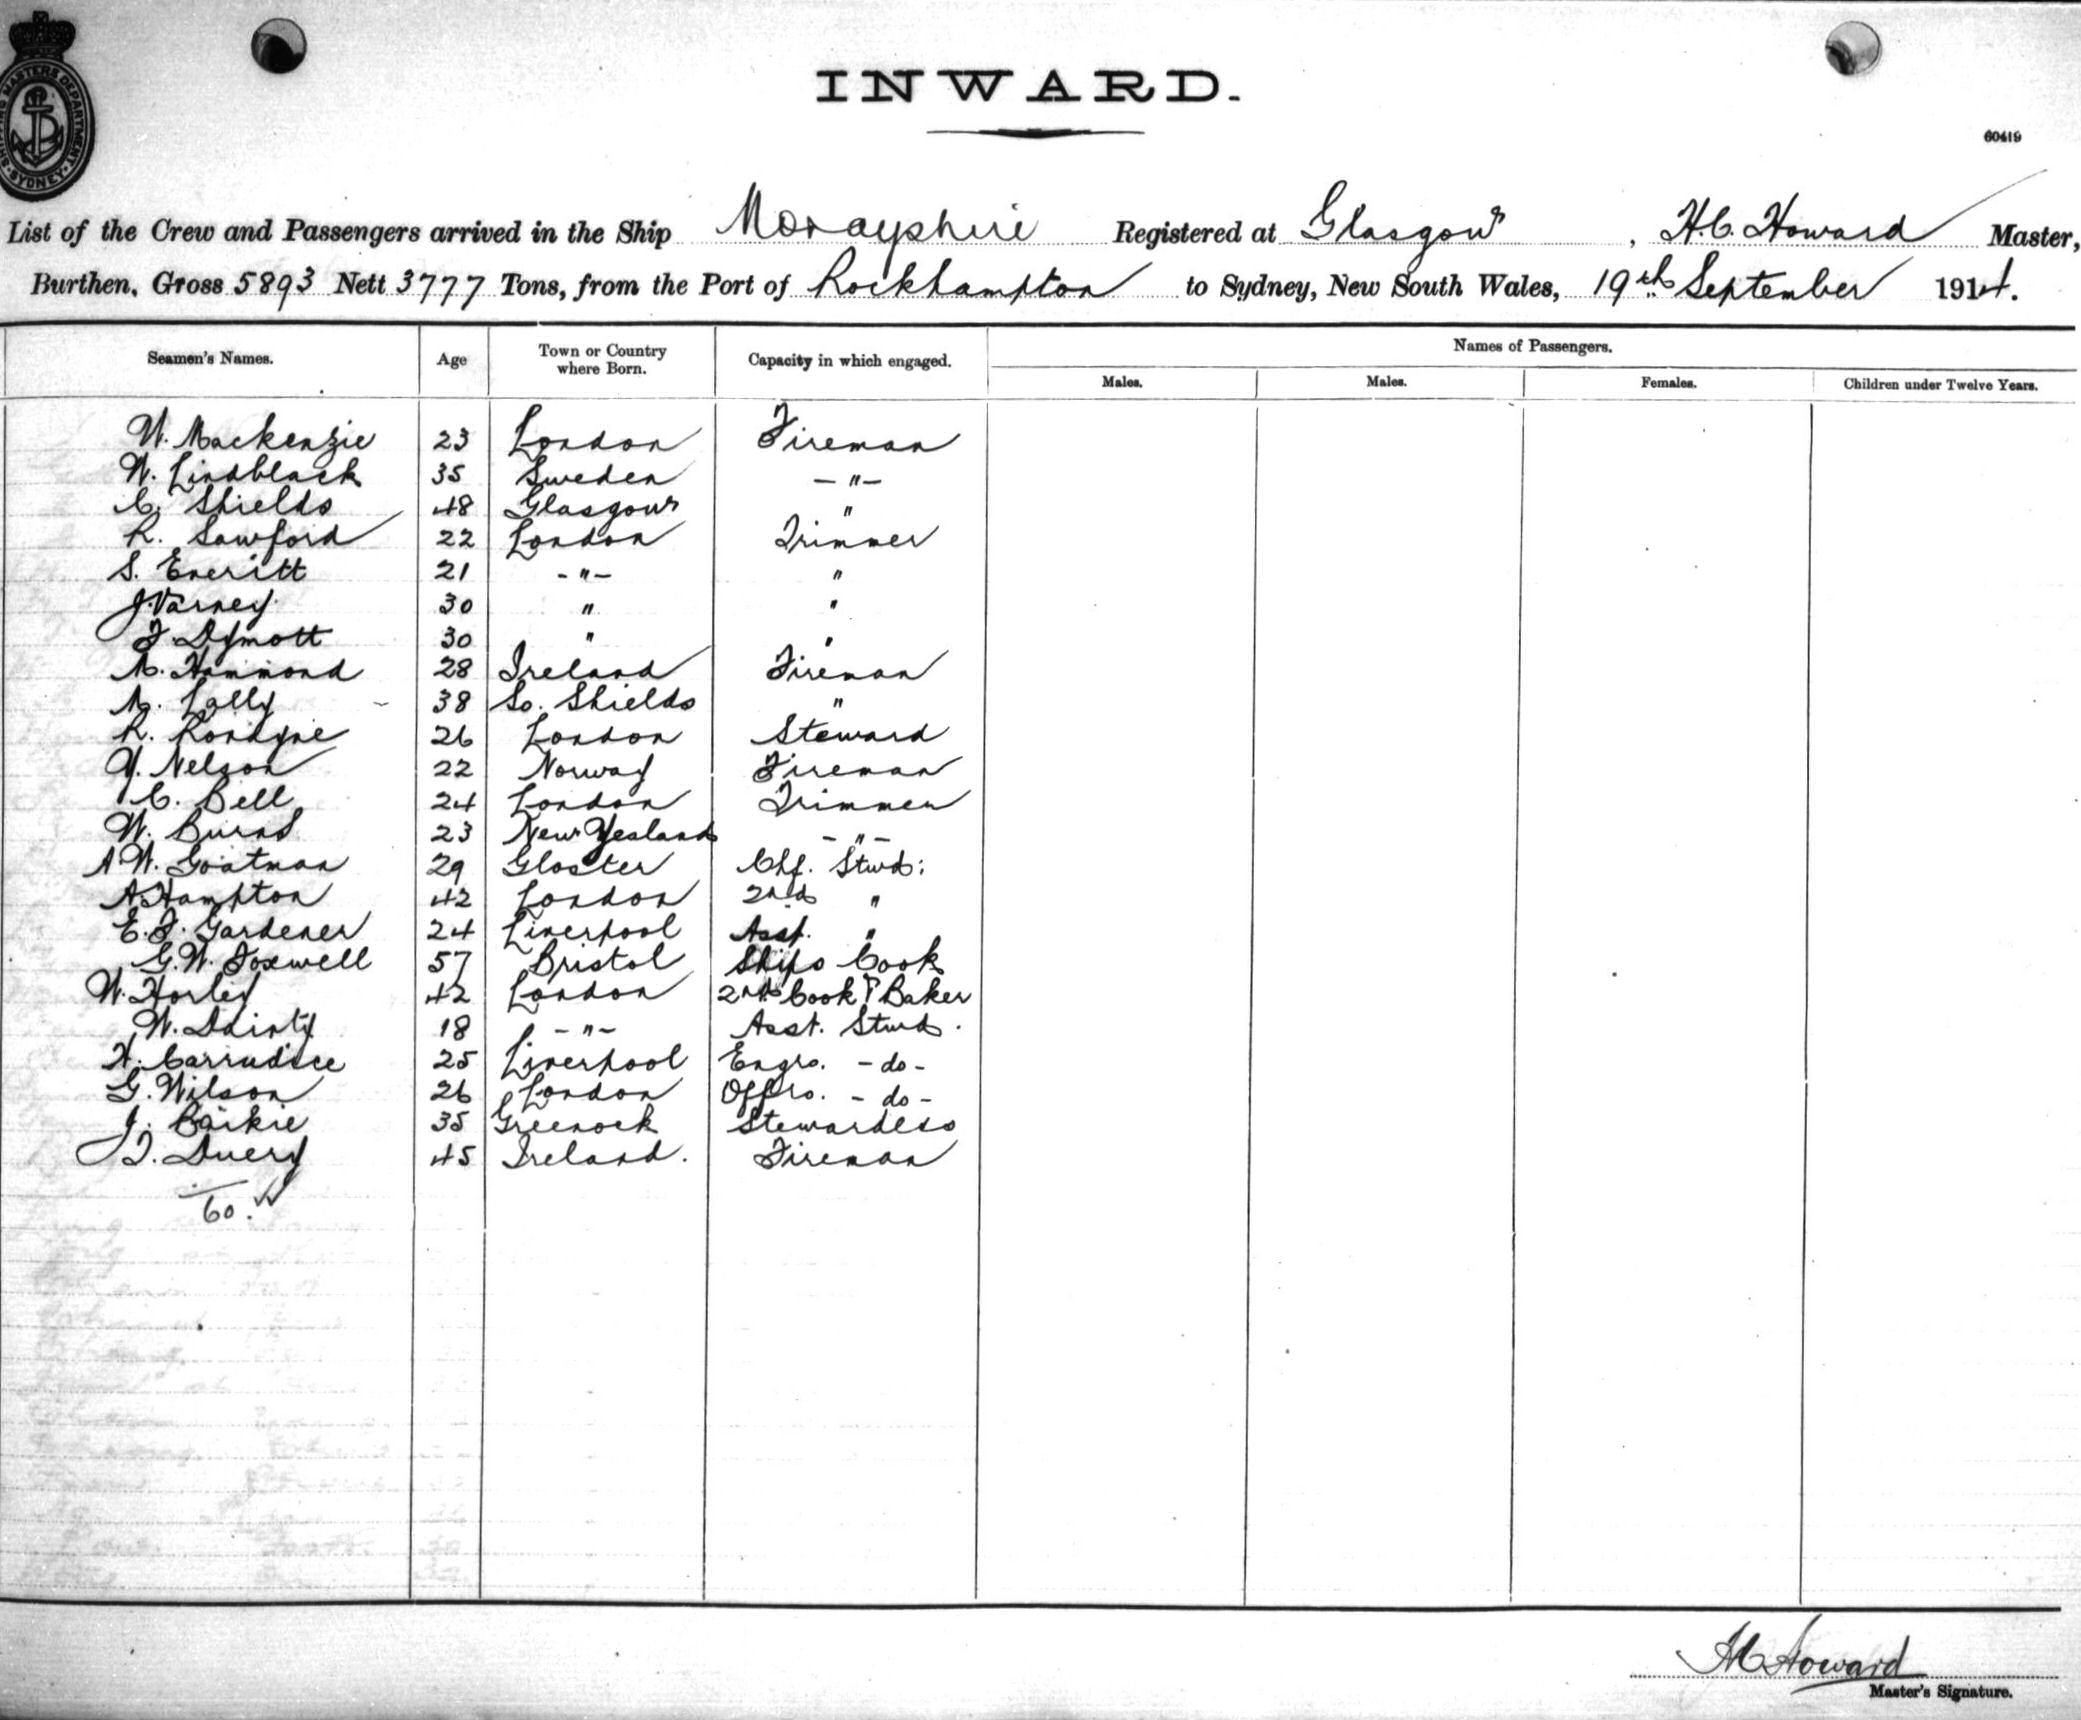 SHIPPING MASTERS DEPARTMENT. SYDNEY.
INWARD.
60419
List of the Crew and Passengers arrived in the Ship Morayshire Registered at Glasgow, H.C. Howard Master,
Burthen, Gross 5893 Nett 3777 Tons, from the Port of Rockhampton to Sydney, New South Wales, 19th September 1914.
Seamen's Names. Age Town or Country where Born. Capacity in which engaged. Names of Passengers.
Males. Males. Females. Children under Twelve Years.
W. Mackenzie 23 London Fireman
W. Lindblack 35 Sweden - " -
C. Shields 48 Glasgow "
R. Sawford 22 London Trimmer
S. Everitt 21 - " - "
J. Varney 30 " "
F. Dymott 30 " "
A. Hammond 28 Ireland Fireman
M. Lally 38 So. Shields "
R. 26 London Steward
W. Nelson 22 Norway Fireman
C. Bell 24 London Trimmer
W. Burns 23 New Zealand - " -
A W. Goatman 29 Gloster Chf. Stwd:
A Hampton 42 London 2nd "
E. F. Gardener 24 Liverpool Asst. "
G. W. Foxwell 57 Bristol Ships Cook
W. Horley 42 London 2nd Cook & Baker
W. Dainty 18 - " - Asst. Stwd.
H. Carrudice 25 Liverpool Engrs. - do -
G. Wilson 26 London Offrs. - do -
J. Baikie 35 Greenock Stewardess
T. Duery 45 Ireland. Fireman
60.
HC Howard
Master's Signature.